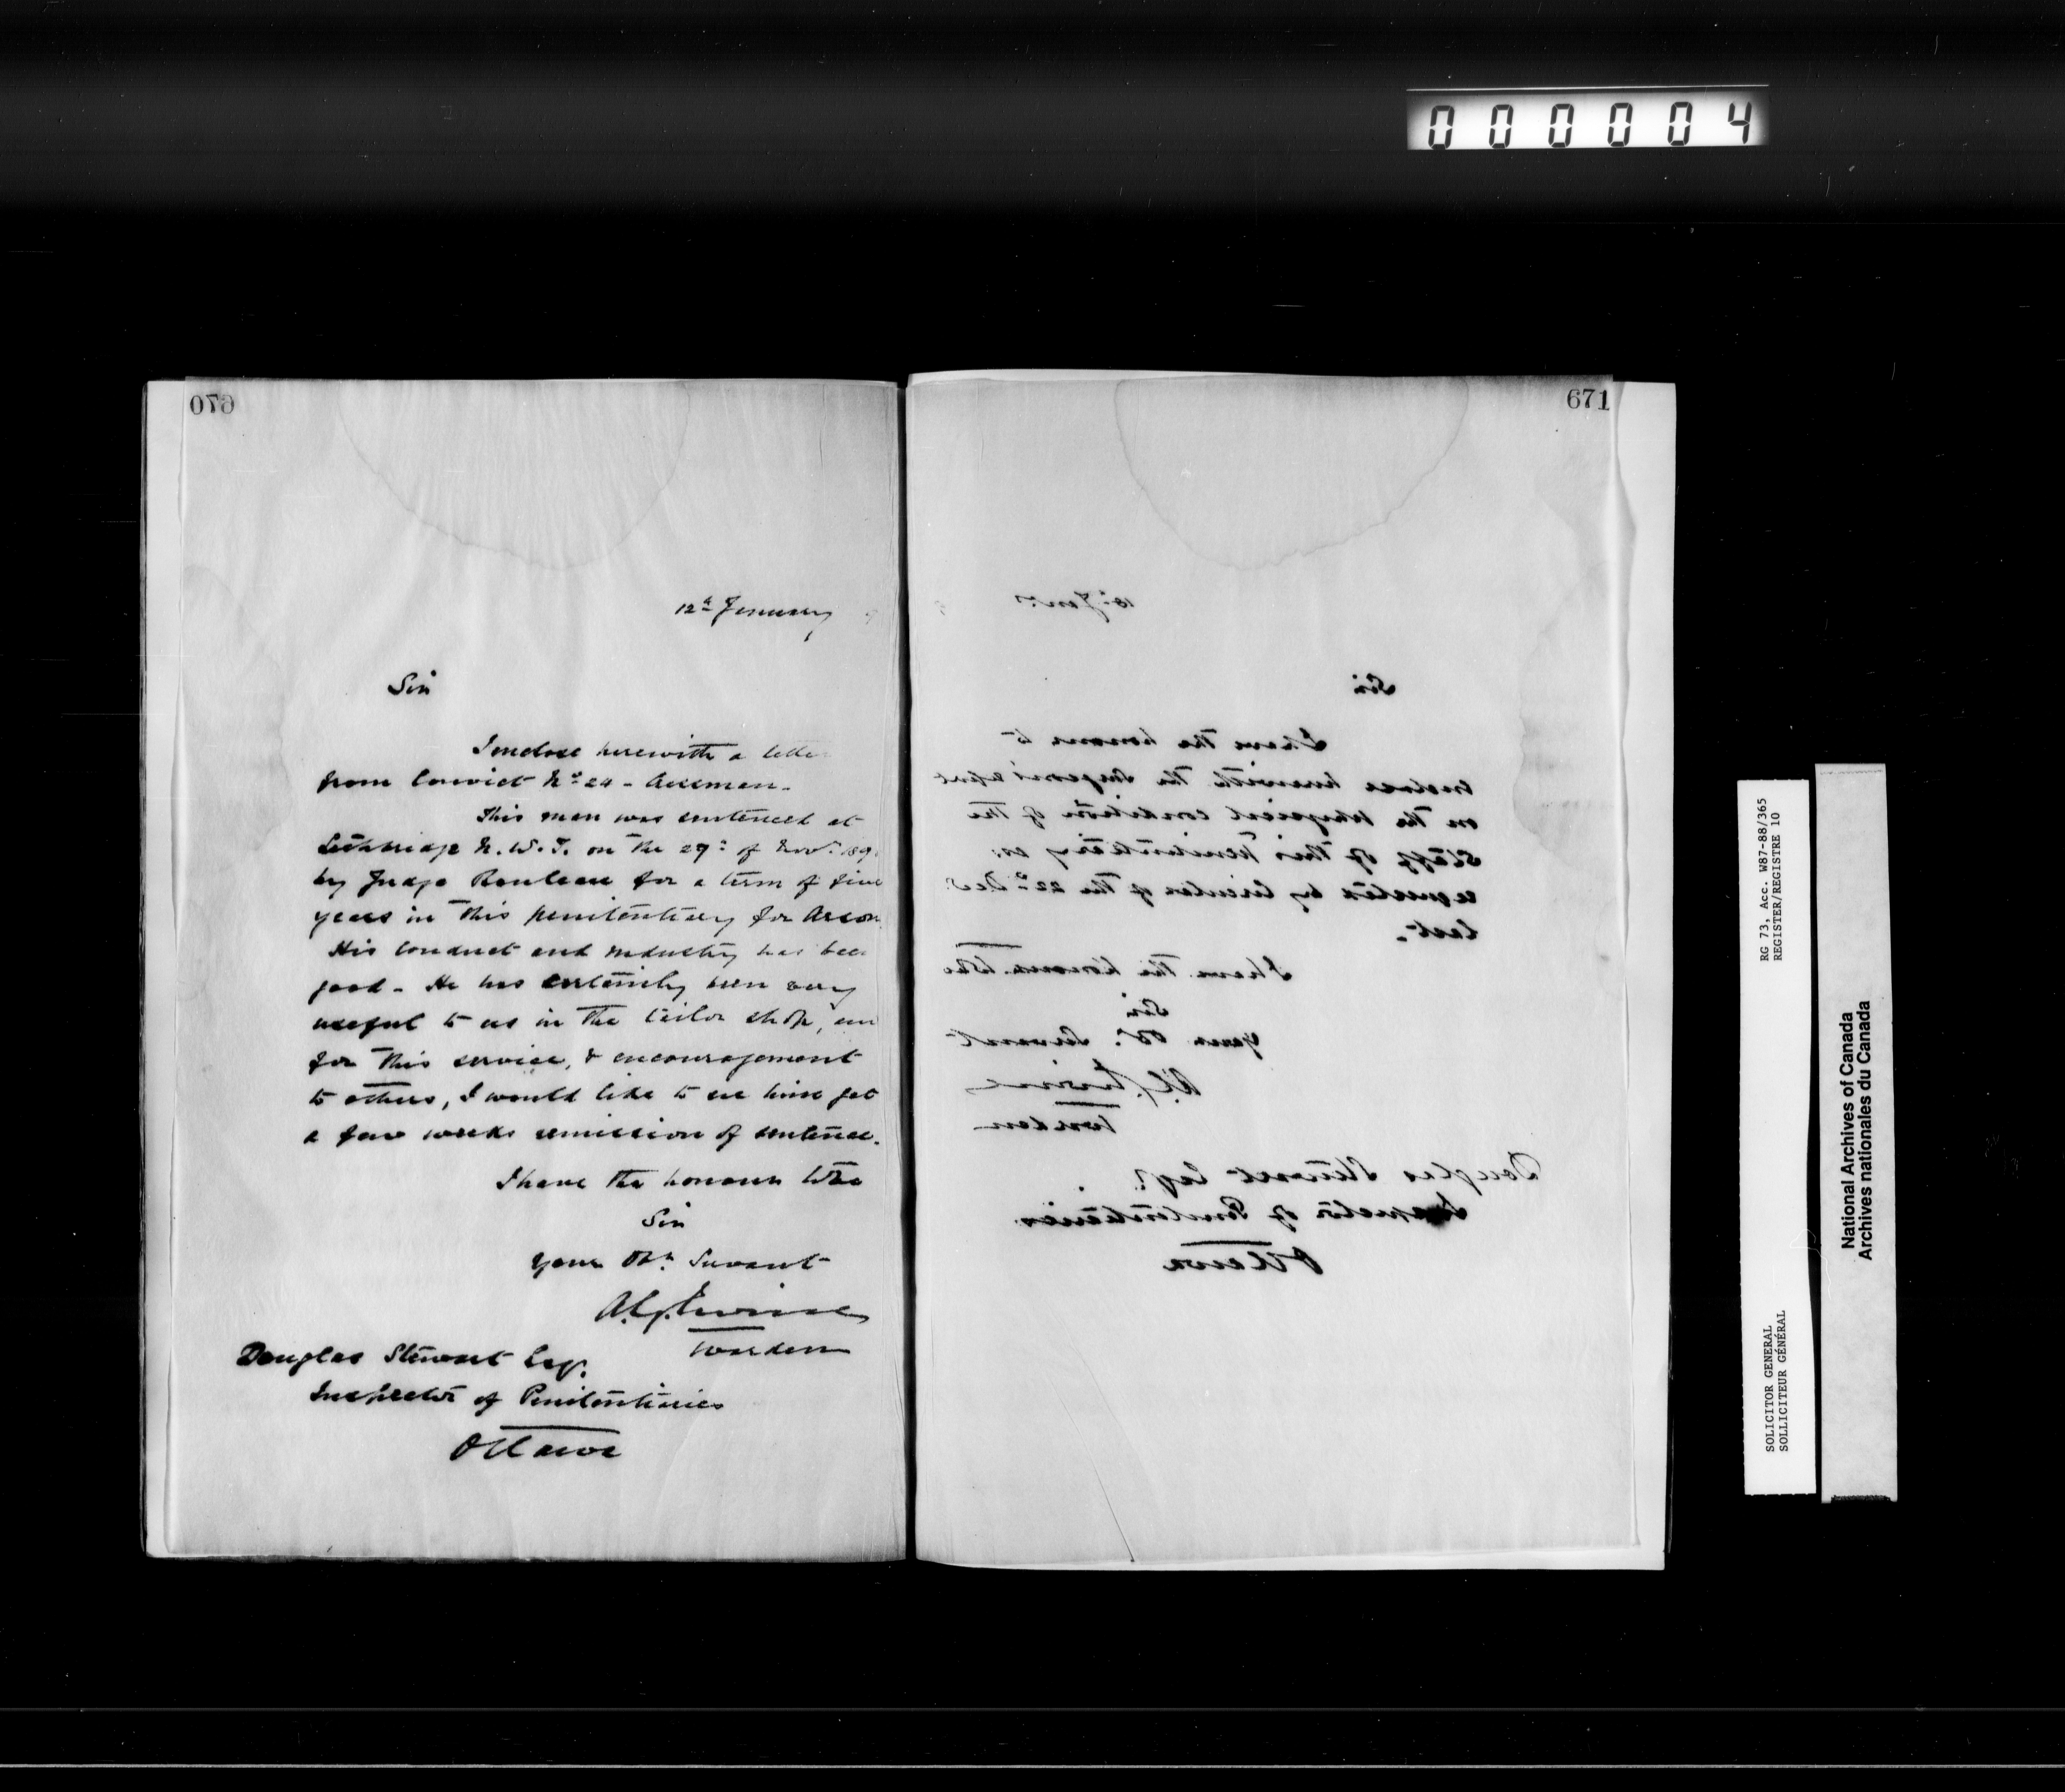 000004
670
12th January
Sir
I enclose herewith a letter
from Convict No 24 - Aulman.
This man was sentenced at
Lethbridge N.W.T. on the 29th of Novr 189
by Judge Rouleau for a term of five
years in this penitentiary for Arson
His conduct and industry has been
good - He has certainly been very
useful to us in the tailor shop, and
for this service, & encouragement
to others, I would like to see him get
a few weeks remission of sentence.
I have the honour to be
Sir
Your Obt Servant
A.G. Irvine
Warden
Douglas Stewart Esq.
Inspector of Penitentiaries
Ottawa
671
Sir
I have the honour to
enclose herewith the Surgeon's report
on the Physical condition of the
Staff of this Penitentiary as
requested by Circular of the 22nd Decr
last.
I have the honour to be
Sir
Your Obt. Servant
A.G. Irvine
Warden
Douglas Stewart Esqr.
Inspector of Penitentiaries
Ottawa
RG 73, Acc. W87-88/365
REGISTER/REGISTRE 10
SOLICITOR GENERAL
SOLLICITEUR GÉNÉRAL
National Archives of Canada
Archives nationales du Canada